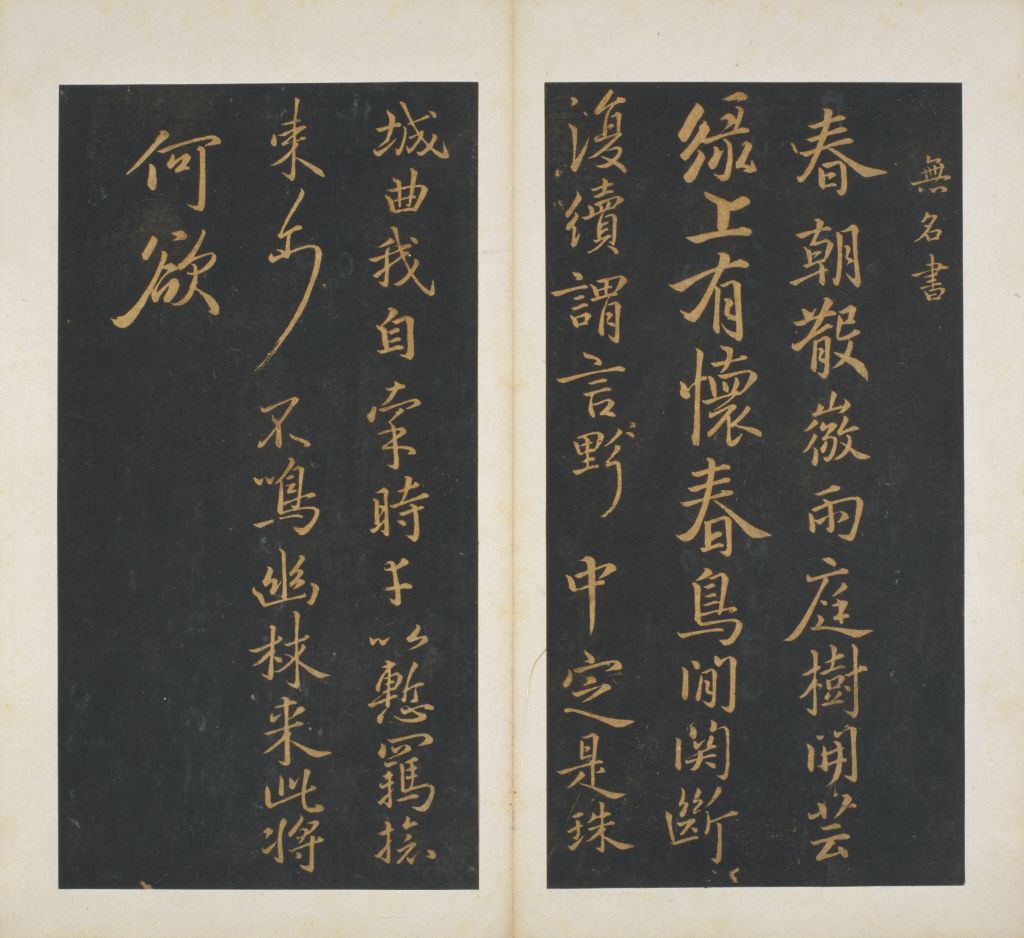 無名書
春朝散微雨庭樹開芸
綠上有懷春鳥間関斷
復續謂言野中定是珠
城曲我自牢時以慙羈
東不鳴幽棘来此將
何欲